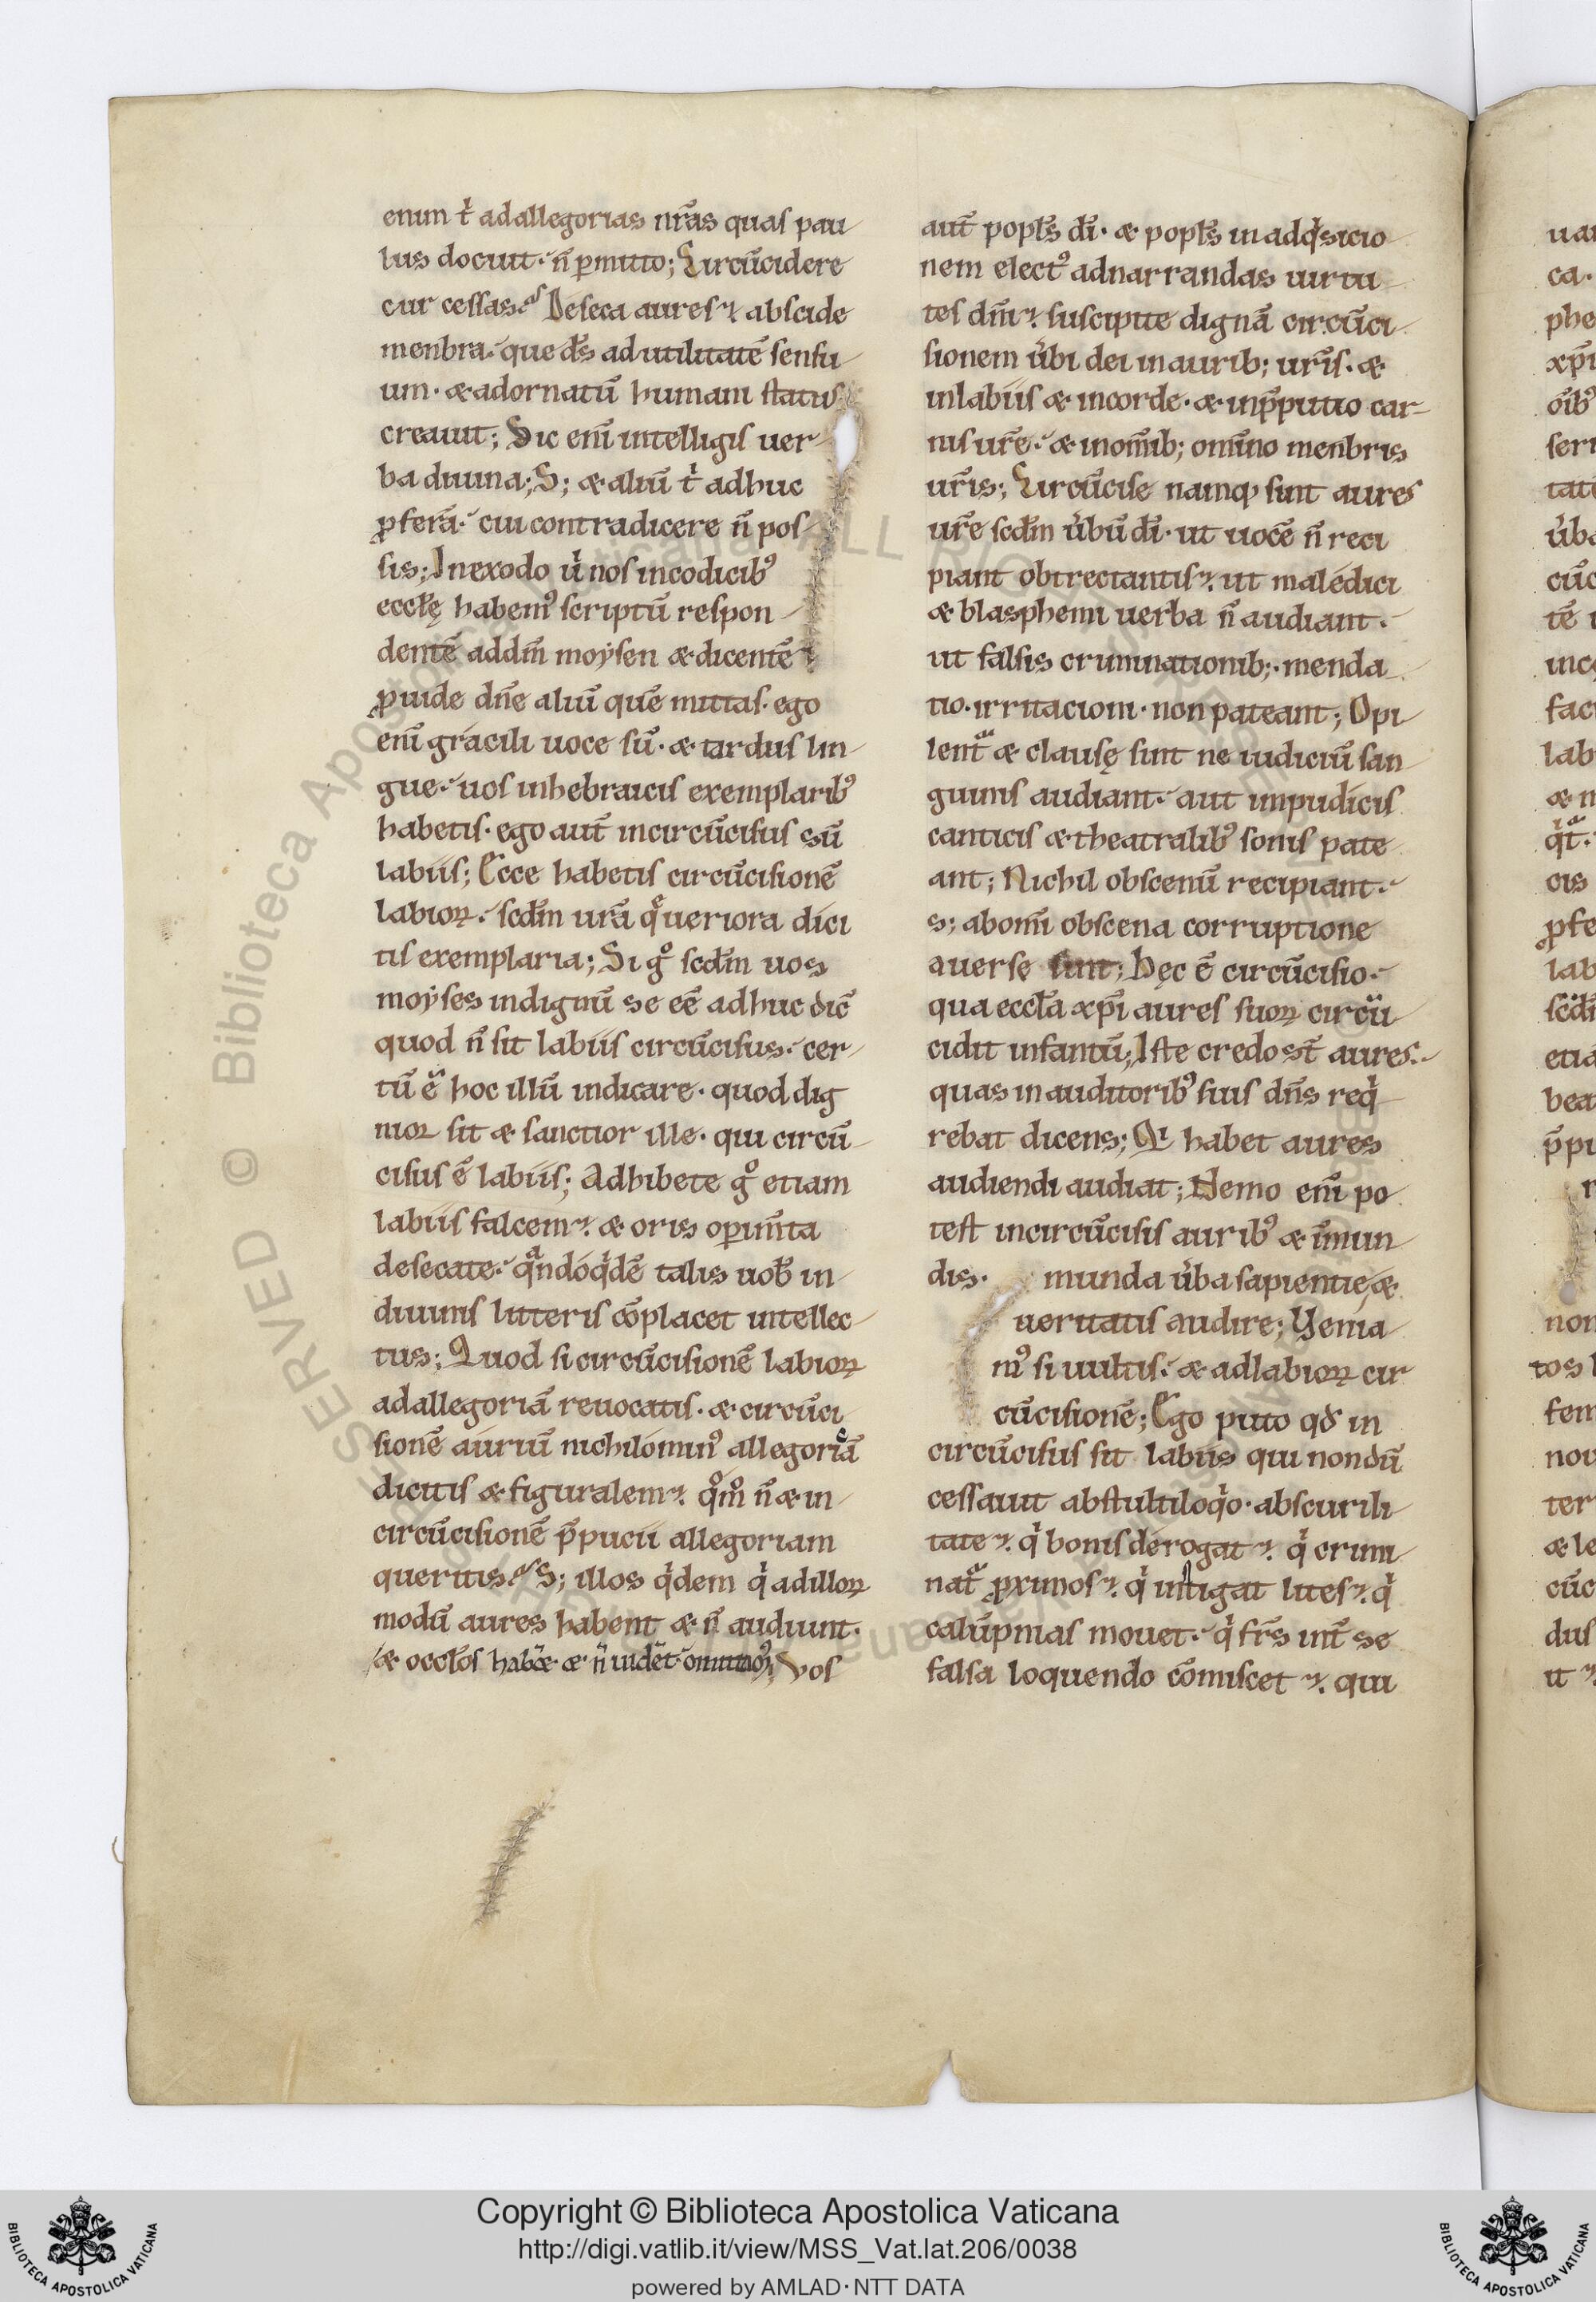 enim t̓ ad allegorias nr̄as quas pau
lus docuit· n̄ ꝑmitto; Circūcidere
cur cessas? Deseca aures· abscide
menbra· que ds̄ ad utilitatē sensu
um· & adornatū humani status
creauit; Sic enī intelligis uer
ba diuina; S; & aliū t̓ adhuc
ꝓferā· cui contradicere n̄ pos
sis; In exodo u̓ nos in codicib᷒
eccl̄ę habem᷒ scriptū respon
dentē ad dm̄ moẏsen & dicentē
ꝓuide dn̄e aliū quē mittas· ego
enī gracili uoce sū· & tardus lin
gue· uos in hebraicis exemplarib᷒
habetis· ego aut̄ incircūcisus sū
labiis; Ecce habetis circūcisionē
labioꝝ· scdm̄ ur̄a qͤ ueriora dici
tis exemplaria; Si gͦ scdm̄ uos
moẏses indignū se eē adhuc dic̄
quod n̄ sit labiis circūcisus· cer
tū ē hoc illū indicare· quod dig
nior sit & sanctior ille· qui circū
cisus ē labiis; Adhibete gͦ etiam
labiis falcem· & oris oꝑim̄ta
desecate· qͣndoqͥdē talis uob̄ in
diuinis litteris cōplacet intellec
tus; Quod si circūcisionē labioꝝ
ad allegoriā reuocatis· & circūci
sionē auriū nichilomin᷒ allegoricā
dicitis & figuralem· qͦmͦ n̄ & in
circūcisionē p̄pucii allegoriam
queritis? S; illos qͥdem qͥ ad illoꝝ
modū aures habent & n̄ audiunt·
& oculos hab̄& & n̄ uidēt omittam᷒; Vos
aut̄ popl̄s dī· & popl̄s in adqͥsicio
nem elect᷒ ad narrandas uirtu
tes dm̄i· suscipite dignā circūci
sionem u̓bi dei in aurib; ur̄is· &
in labiis & in corde· & in p̄putio car
nis ur̄e· & in om̄ib; omīno menbris
ur̄is; Circūcise namq; sint aures
ur̄e scdm̄ u̓bū dī· ut uocē n̄ reci
piant obtrectantis· ut maledici
& blasphemi uerba n̄ audiant·
ut falsis criminationib;· menda
tio· irritacioni· non pateant; Opi
lentᷓ & clausę sint ne iudiciū san
guinis audiant· aut impudicis
canticis & theatralib᷒ sonis pate
ant; Nichil obscenū recipiant·
s; ab omī obscena corruptione
auerse sint; Hęc ē circūcisio·
qua eccl̄a xp̄i aures suoꝝ circū
cidit infantū; Iste credo st̄ aures·
quas in auditorib᷒ suis dn̄s reqͥ
rebat dicens; Qͥ habet aures
audiendi audiat; Nemo enī po
test incircūcisis aurib᷒ & īmun
dis· munda u̓ba sapientie &
ueritatis audire; Venia
m᷒ si uultis· & ad labioꝝ cir
cūcisionē; Ego puto qd̄ in
circūcisus sit labiis qui nondū
cessauit ab stultiloqͥo· ab scurili
tate· qͥ bonis derogat· qͥ crimi
natᷓ ꝓximos· qͥ instigat lites· qͥ
calūpnias mouet· qͥ fr̄s int̄ se
falsa loquendo cōmiscet· qui
Copyright © Biblioteca Apostolica Vaticana
http://digi.vatlib.it/view/MSS_Vat.lat.206/0038
powered by AMLAD·NTT DATA